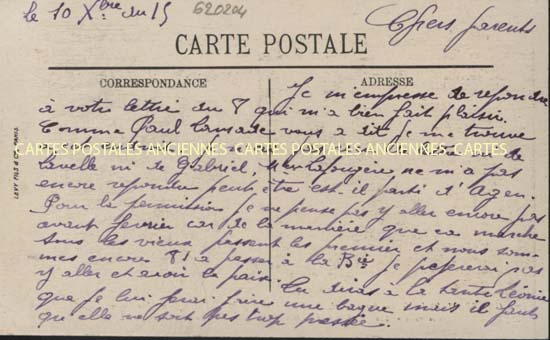 le 10 Xbre du 15
620204
Chers parents
CARTE POSTALE
CORRESPONDANCE
ADRESSE
Je m'empresse de repondre
à votre lettre du 8 qui m'a bien fait plaisir.
Comme Paul vous a dit je me trouve
CARTES POSTALES ANCIENNES CARTES POSTALES ANCIENNES CARTES
de
Lavelle ni de Gabriel, ne m'a pas
encore repondu peut être est-il parti d'Agen.
Pour la permission je ne pense pas y aller encore pas
avant fevrier car de la manière que ca marche
tous les vieux passent les premier et nous som-
mes encore 81 a passer à la Bie je
y aller et avoir la paix.
Tu diras à la tante Léonie
que je lui ferai faire une bague mais il faut
qu'elle ne soit pas trop pressée.
LEVY FILS & Cie, PARIS